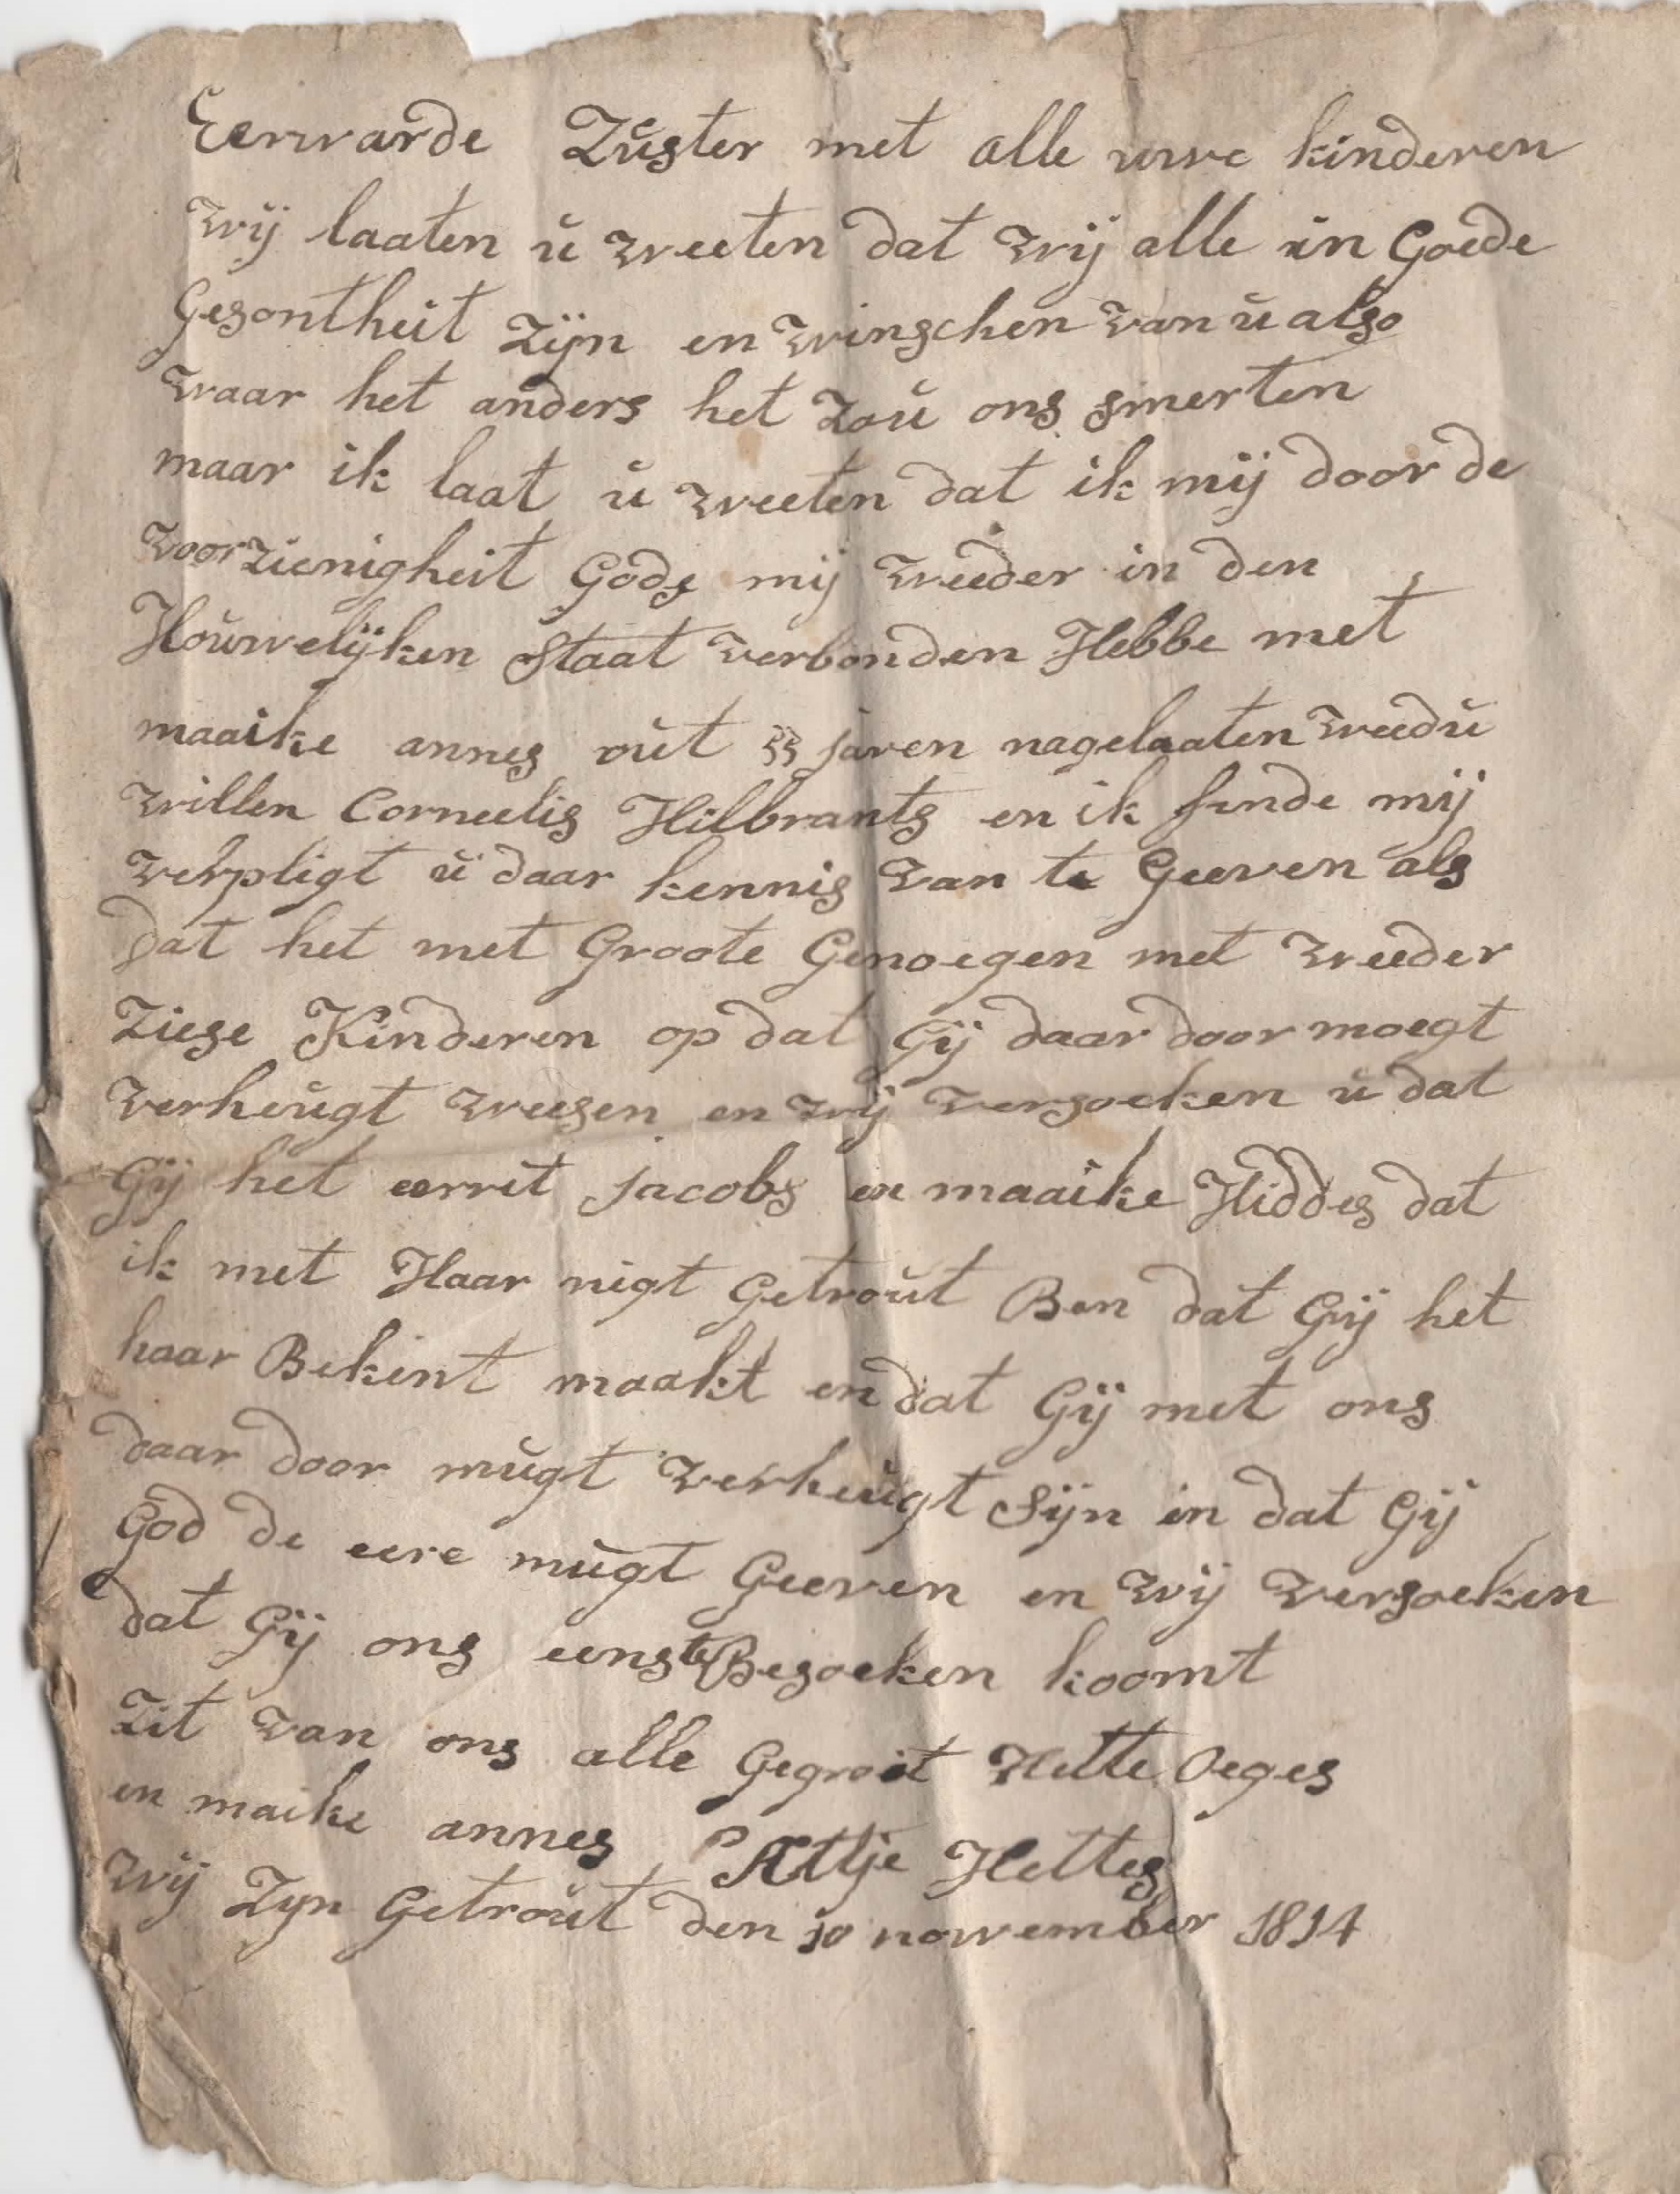 Eerwarde Zuster met alle uwe kinderen
wij laaten u weeten dat wij alle in Goede
Gesontheit Zijn en winschen van u also
waar het anders het Zou ons smerten
maar ik laat u weeten dat ik mij door de
voorzienigheit Gods mij weeder in den
Houwelijken Staat verbonden Hebbe met
maaike annes out 55 jaren nagelaaten weedu
willen Corneelis Hilbrants en ik finde mij
verpligt u daar kennis van te Geeven als
dat het met Groote Genoegen met weeder
Ziese Kinderen op dat Gij daar door moegt
verheugt weesen en wij versoeken u dat
Gij het eerrit jacobs en maaike Hiddes dat
ik met Haar nigt Getrout Ben dat Gij het
haar Bekint maakt en dat Gij met ons
daar door mugt verheugt Sijn in dat Gij
God de eere mugt Geeven en wij versoeken
dat Gij ons eens te Besoeken koomt
Zit van ons alle Gegroit Hette Oeges
en maike annes Attje Hettes
wij Zyn Getrout den 10 november 1814